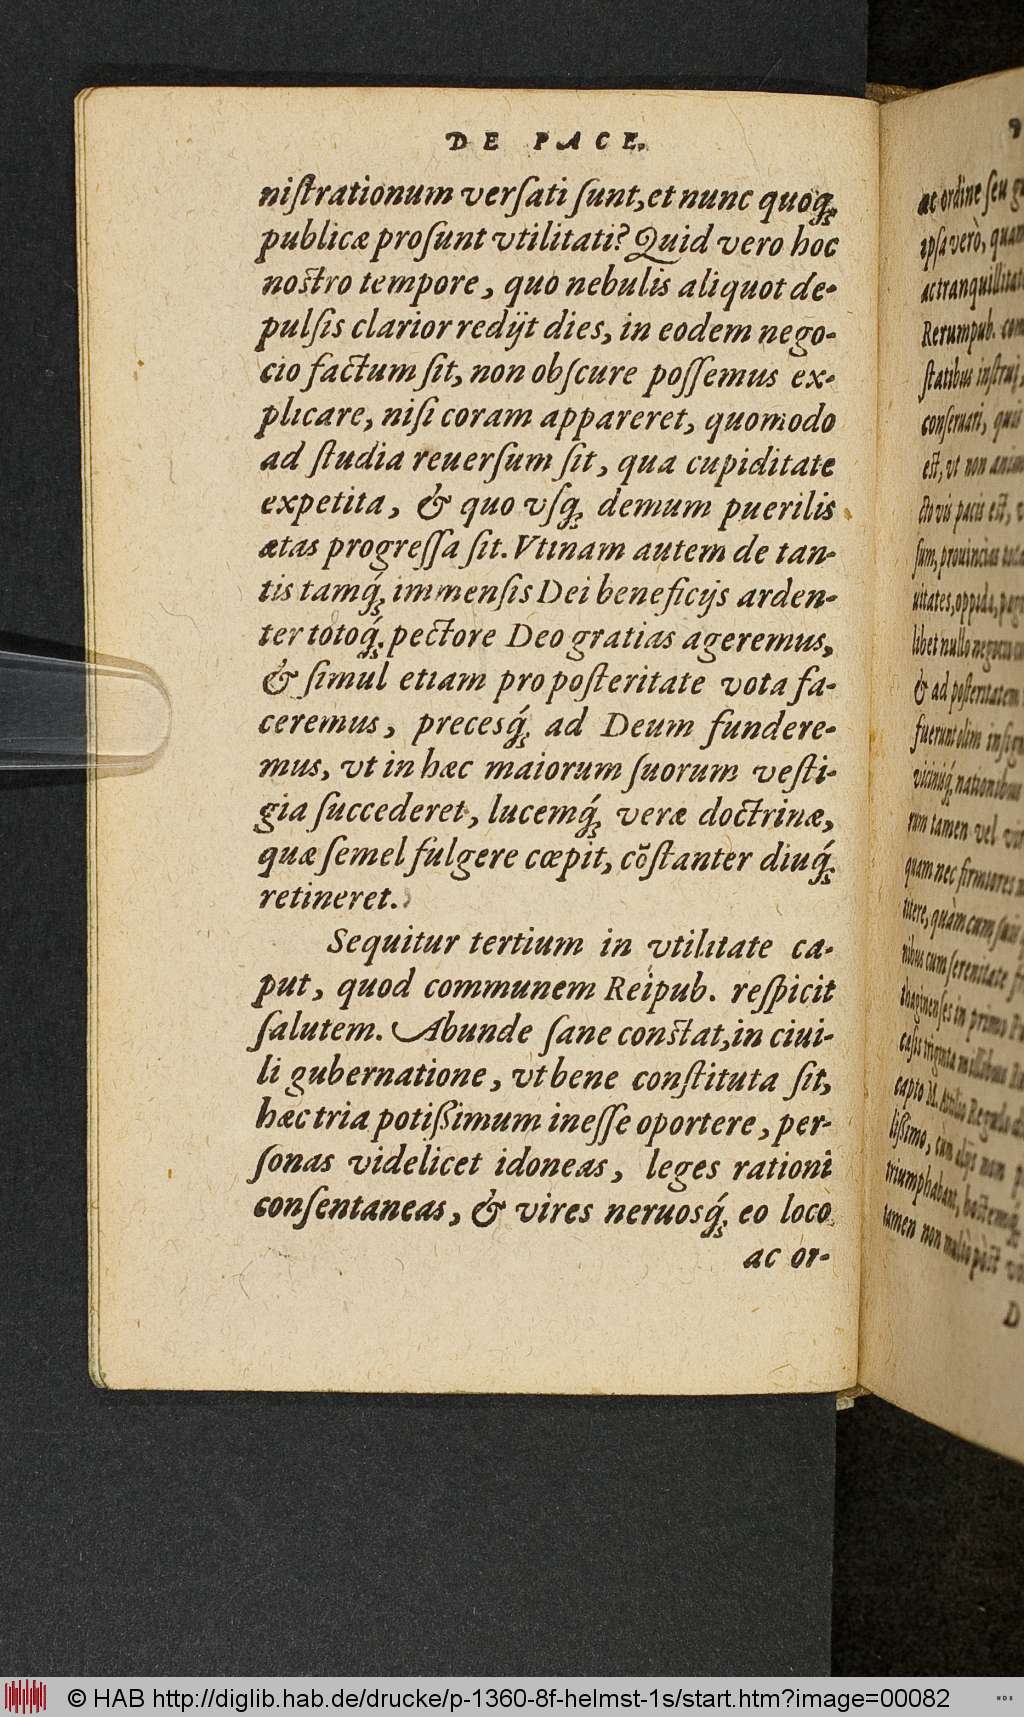 DE PACE.
niſtrationum verſati ſunt, et nunc quoq́;
publicæ proſunt vtilitati? Quid vero hoc
nostro tempore, quo nebulis aliquot de-
pulſis clarior redijt dies, in eodem nego-
cio factum ſit, non obſcure poſſemus ex-
plicare, niſi coram appareret, quomodo
ad ſtudia reuerſum ſit, qua cupiditate
expetita, & quo vſq; demum puerilis
ætas progreſſa ſit. Vtinam autem de tan-
tis tamq́; immenſis Dei beneficijs arden-
ter totoq́; pectore Deo gratias ageremus,
& ſimul etiam pro poſteritate vota fa-
ceremus, precesq́; ad Deum fundere-
mus, vt in hæc maiorum ſuorum veſti-
gia ſuccederet, lucemq́; veræ doctrinæ,
quæ ſemel fulgere cœpit, cōſtanter diuq́;
retineret.
Sequitur tertium in vtilitate ca-
put, quod communem Reipub. reſpicit
ſalutem. Abunde ſane constat, in ciui-
li gubernatione, vt bene conſtituta ſit,
hæc tria potißimum ineſſe oportere, per-
ſonas videlicet idoneas, leges rationi
conſentaneas, & vires neruosq́; eo loco
ac or-
ac ordine ſeu
ipſa verò, quam
ac tranquillitat
Rerumpub. con
ſtatibus inſtrui,
conſeruari, quis
est, vt non anim
cto vis pacis est, v
ſum, prouincias tota
uitates, oppida, pag
libet nullo negocio
& ad poſteritatem
fuerunt olim inſign
viciniſq́; nationibus
rum tamen vel vir
quam nec firmiores
titere, quàm cum ſuis
nibus cum ſerenitate
thaginenſes in primo
caſis triginta millibus
capto M. Attilio Regulo
lißimo, cùm alijs nam
triumphabant, hoſtemq́;
tamen non multò pòst
D
© HAB http://diglib.hab.de/drucke/p-1360-8f-helmst-1s/start.htm?image=00082